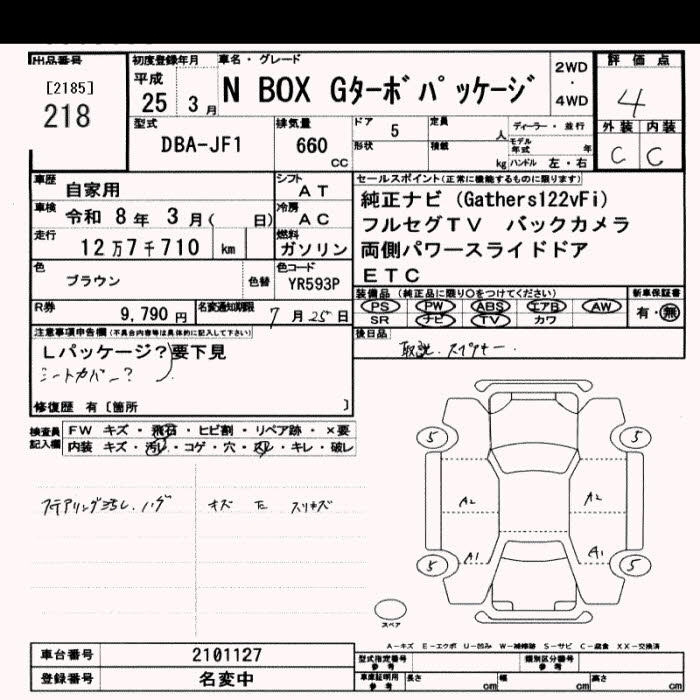 出品番号
[2185]
218
初度登録年月
平成
25 3月
車名・グレード
N BOX Gターボパッケージ
2WD
・
4WD
評価点
4
外装 内装
C C
型式
DBA-JF1
排気量
660
cc
ドア 5
定員
人
形状
積載
kg
ディーラー・並行
モデル年式 年
ハンドル 左・右
車歴 自家用
シフト AT
車検 令和 8年 3月( 日)
冷房 AC
走行 12万7千710 km
燃料 ガソリン
色 ブラウン
色替
色コード YR593P
R券 9,790円
名変通知期限 7月25日
セールスポイント(正常に機能するものに限ります)
純正ナビ (Gathers122vFi)
フルセグTV バックカメラ
両側パワースライドドア
ETC
装備品 (純正品に限り○をつけてください)
PS PW ABS エアB AW
SR ナビ TV カワ
新車保証書
有・無
後日品
取説、スペアキー.
注意事項申告欄(不具合内容等は具体的に記入して下さい)
Lパッケージ?要下見
シートカバー?
修復歴 有〔箇所 〕
検査員記入欄
FW キズ・飛石・ヒビ割・リペア跡・×要
内装 キズ・汚レ・コゲ・穴・スレ・キレ・破レ
ステアリングヨゴレ、ハゲ
5 5
A2 A2
A1 A1
5 5
スペア
A-キズ E-エクボ U-凹み W-補修跡 S-サビ C-腐食 XX-交換済
車台番号 2101127
登録番号 名変中
型式指定番号 参考
類別区分番号 参考
車庫証明用 参考
長さ cm
幅 cm
高さ cm